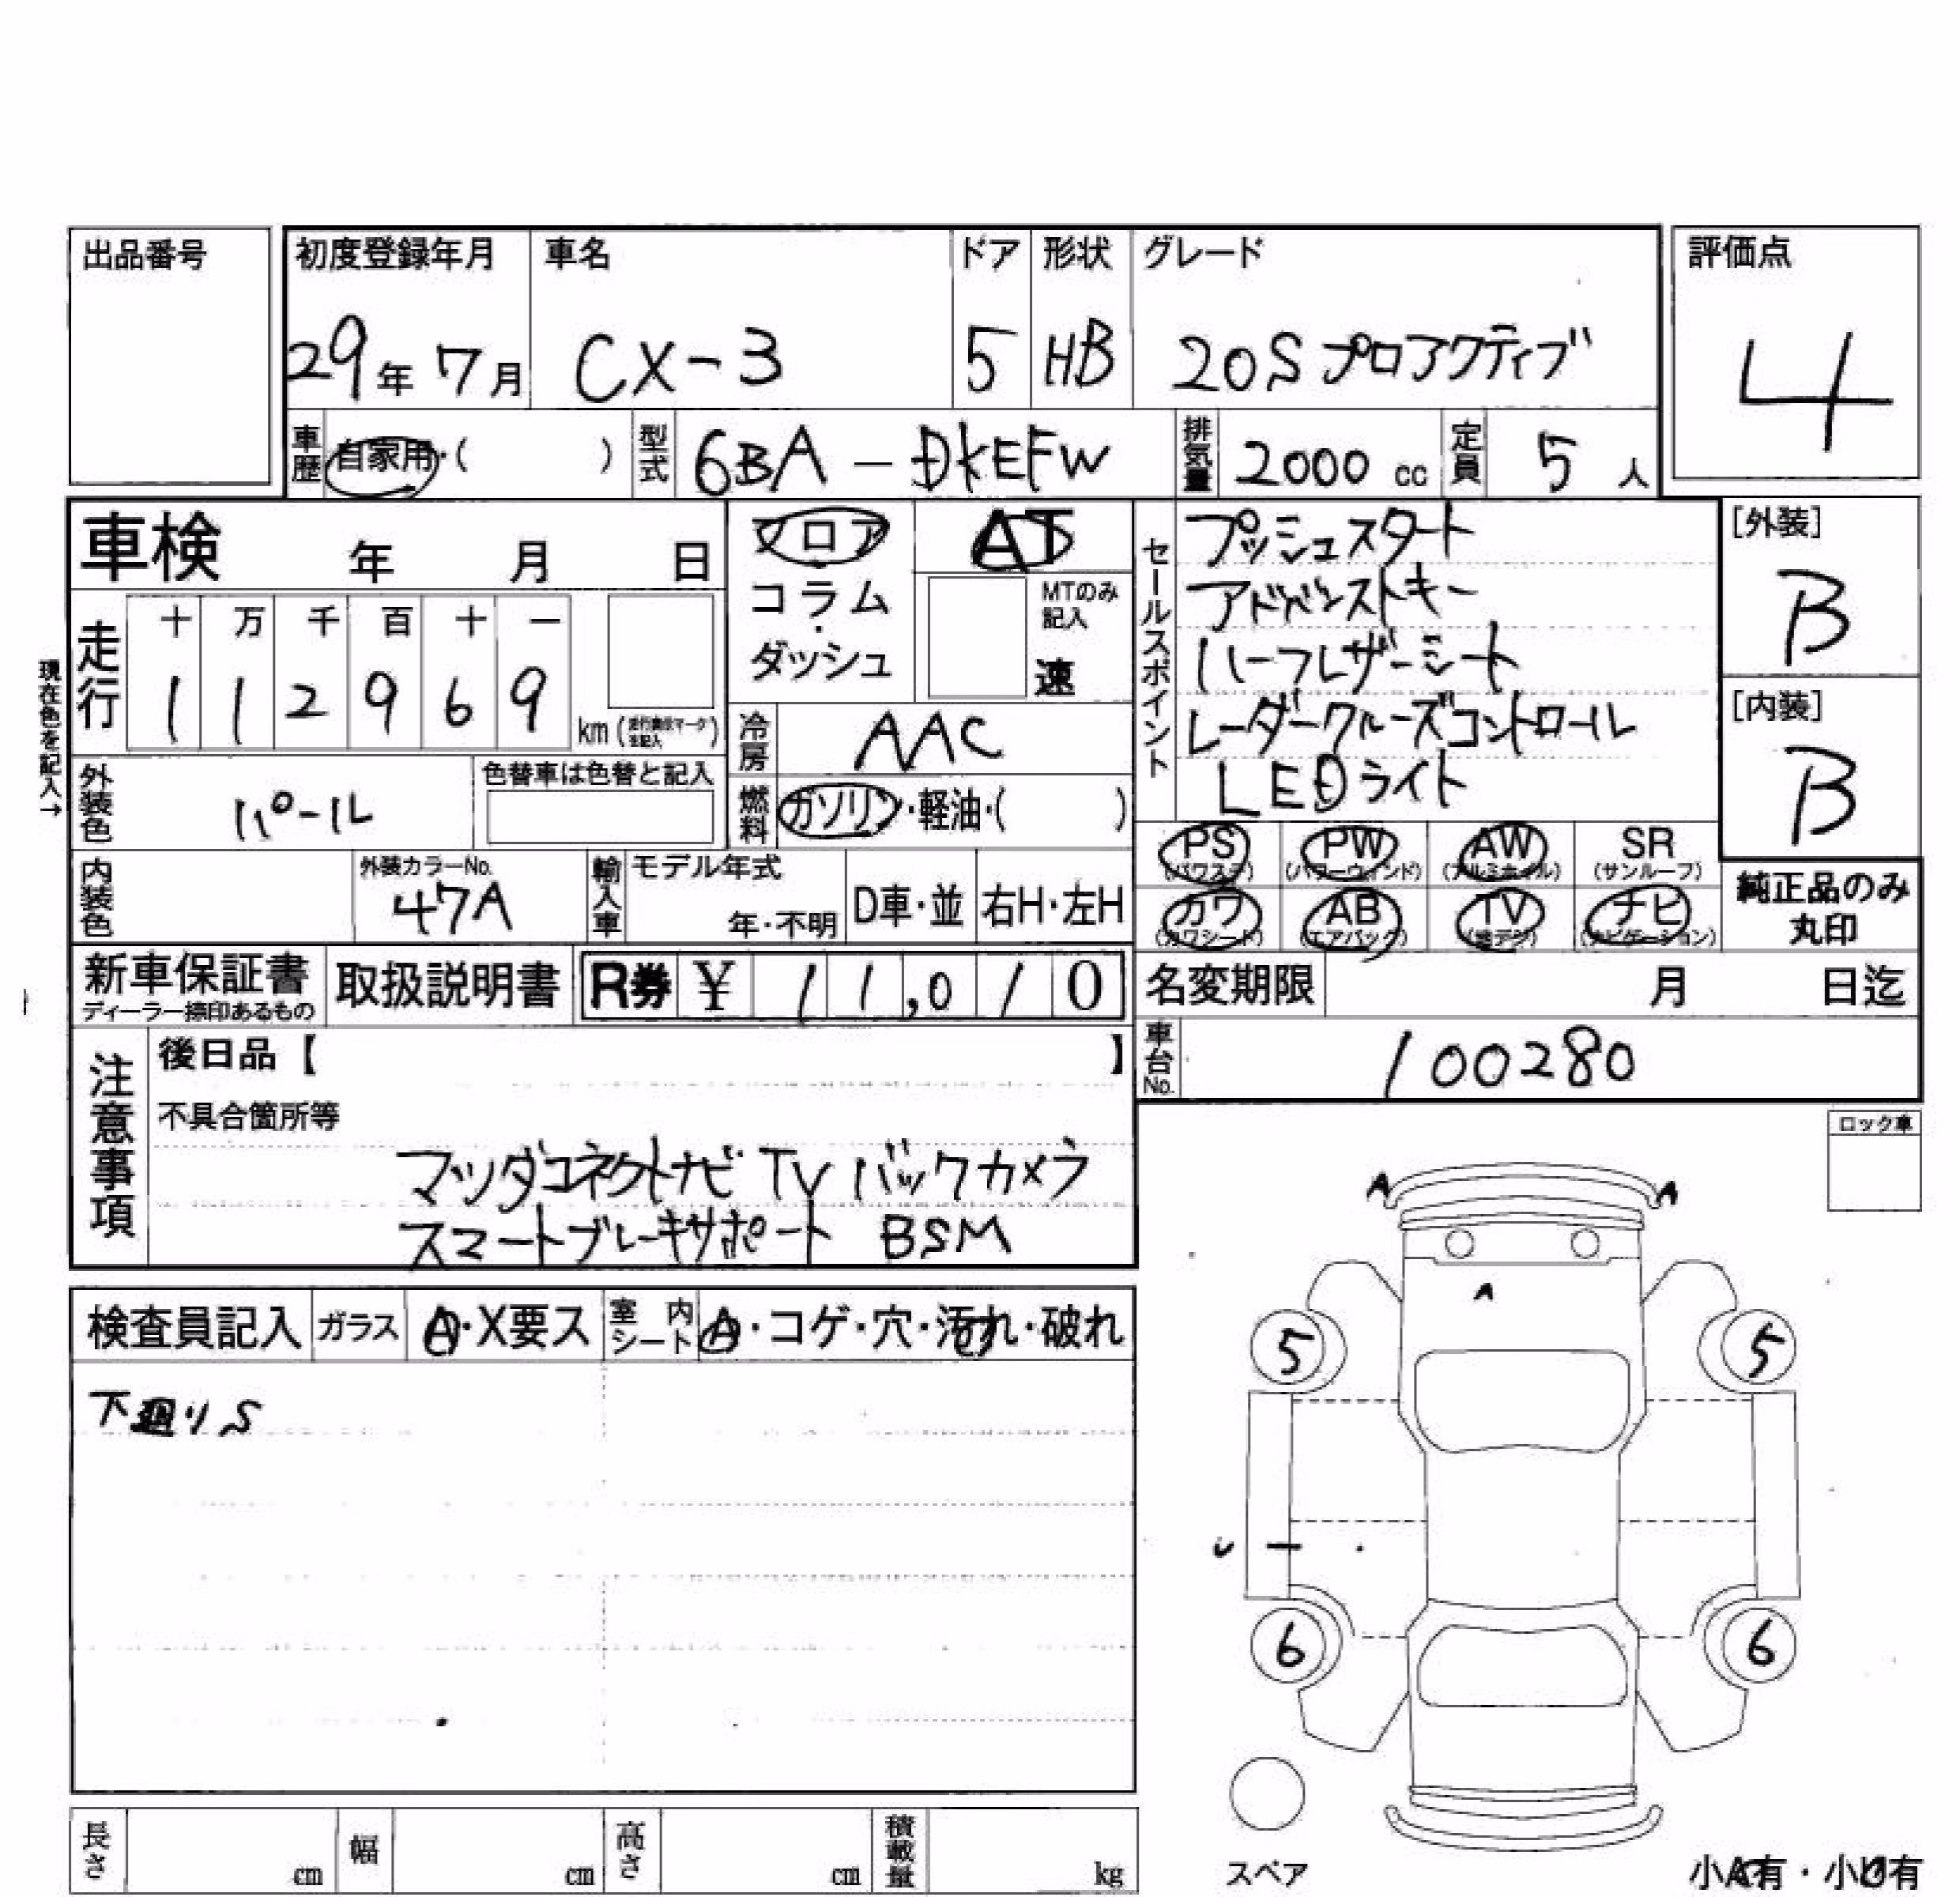 出品番号
初度登録年月 車名 ドア 形状 グレード 評価点
29年 7月 CX-3 5 HB 20S プロアクティブ 4
車歴 自家用・( ) 型式 6BA－DKEFW 排気量 2000 cc 定員 5 人
車検 年 月 日
フロア・コラム・ダッシュ
AT
MTのみ記入
速
現在色を記入→
走行
十 万 千 百 十 一
1 1 2 9 6 9 km
冷房 AAC
燃料 ガソリン・軽油・( )
セールスポイント
プッシュスタート
アドバンストキー
ハーフレザーシート
レーダークルーズコントロール
LEDライト
[外装]
B
[内装]
B
外装色 パール 色替車は色替と記入
内装色 外装カラーNo. 47A
輸入車 モデル年式 年・不明 D車・並 右H・左H
PS (パワステ) PW (パワーウィンド) AW (アルミホイル) SR (サンルーフ)
カワ (カワシート) AB (エアバック) TV (地デジ) ナビ (ナビゲーション)
純正品のみ
丸印
新車保証書 取扱説明書 R券 ¥ 11,010
ディーラー捺印あるもの
名変期限 月 日迄
車台No. 100280
注意事項
後日品【 】
不具合箇所等
マツダコネクトナビ TV バックカメラ
スマートブレーキサポート BSM
ロック車
A A
A
5 5
6 6
検査員記入 ガラス A・X要ス 室内シート A・コゲ・穴・汚れ・破れ
下廻りS
長さ cm 幅 cm 高さ cm 積載量 kg
スペア
小A有・小U有